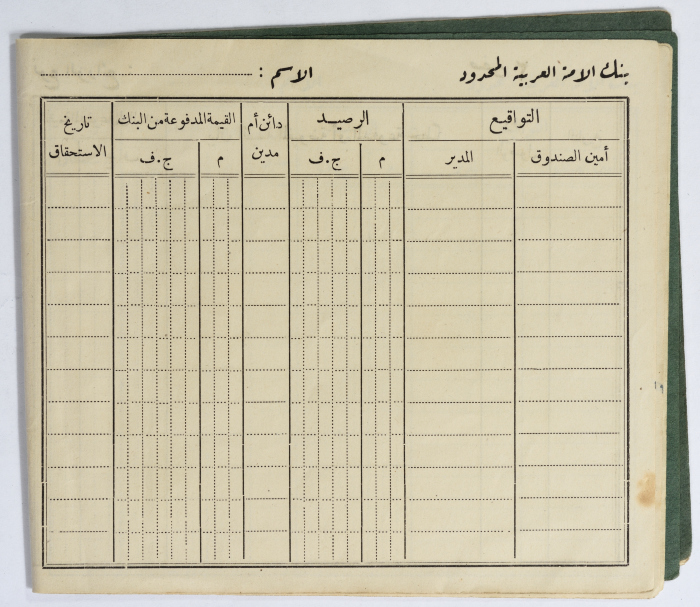 بنك الامة العربية المحدود
الاسم :
التواقيع
الرصيد
دائن أم مدين
القيمة المدفوعة من البنك
تاريخ الاستحقاق
أمين الصندوق
المدير
م
ج.ف
م
ج.ف